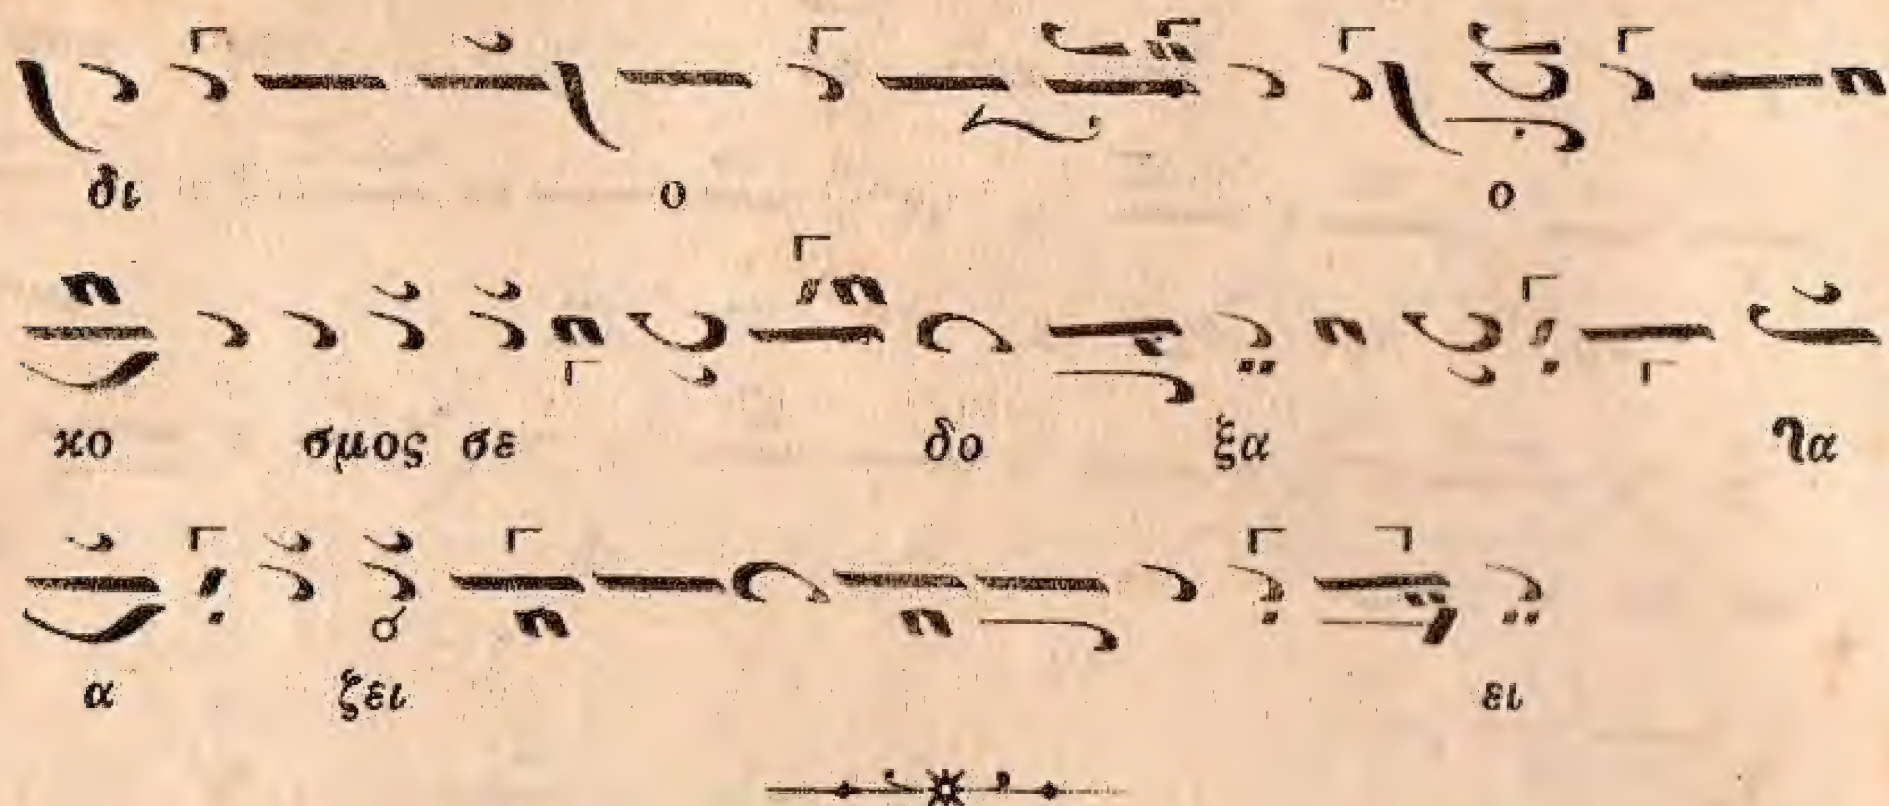 δι ο ο
κο σμος σε δο ξα τα
α ζει ει